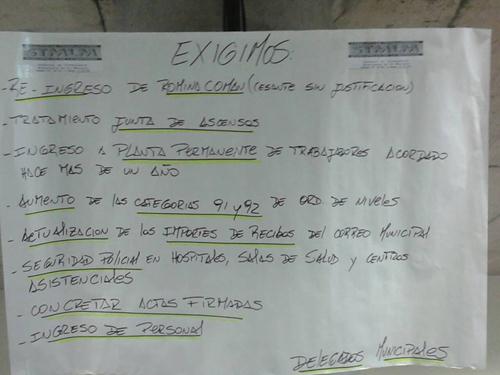 STMLM STMLM
EXIGIMOS:
- RE-INGRESO DE ROMINA COMAN (CESANTE SIN JUSTIFICACION)
- TRATAMIENTO JUNTA DE ASCENSOS
- INGRESO A PLANTA PERMANENTE DE TRABAJADORES ACORDADO
HACE MAS DE UN AÑO
- AUMENTO DE LAS CATEGORIAS 91 y 92 DE ORD. DE NIVELES
- ACTUALIZACION DE LOS IMPORTES DE RECIBOS DEL CORREO MUNICIPAL
- SEGURIDAD POLICIAL EN HOSPITALES, SALAS DE SALUD Y CENTROS
ASISTENCIALES
- CONCRETAR ACTAS FIRMADAS
- INGRESO DE PERSONAL
DELEGADOS MUNICIPALES